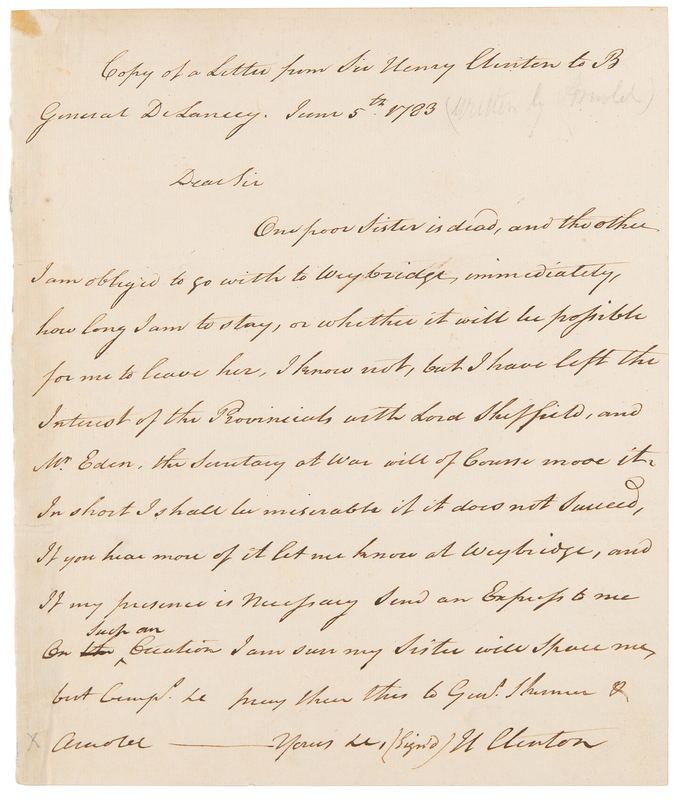 Copy of a Letter from Sir Henry Clinton to B
General DeLancey. June 5th 1783 (written by Arnold)
Dear Sir
One poor Sister is dead, and the other
I am obliged to go with to Weybridge, immediately,
how long I am to stay, or whether it will be possible
for me to leave her, I know not, but I have left the
Interest of the Provincials with Lord Sheffield, and
Mr Eden. the Secretary at War will of Course move it.
In short I shall be miserable if it does not Succeed,
If you hear more of it let me know at Weybridge, and
If my presence is Necessary Send an Express to me
Such an
On ‸ Occation I am sure my Sister will Spare me,
but Compts. &c pray shew this to Genl. Skinner &
x Arnold — Yours &c, (Signd) H Clinton